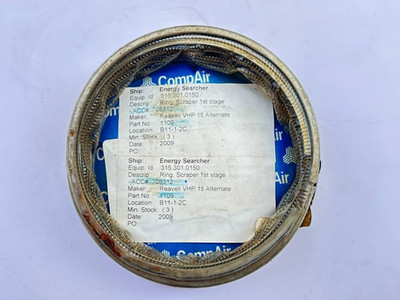 CompAir
Ship: Energy Searcher
Equip. Id. 315.301.0150
Descrip: Ring, Scraper 1st stage
- ACC# 706312
Maker: Reavell VHP 15 Alternate
Part No: 1109
Location: B11-1-2C
Min. Stock: ( 3 )
Date: 2009
PO:
Ship: Energy Searcher
Equip. Id. 315.301.0150
Descrip: Ring, Scraper 1st stage
- ACC# 706312
Maker: Reavell VHP 15 Alternate
Part No: 1109
Location: B11-1-2C
Min. Stock: ( 3 )
Date: 2009
PO: